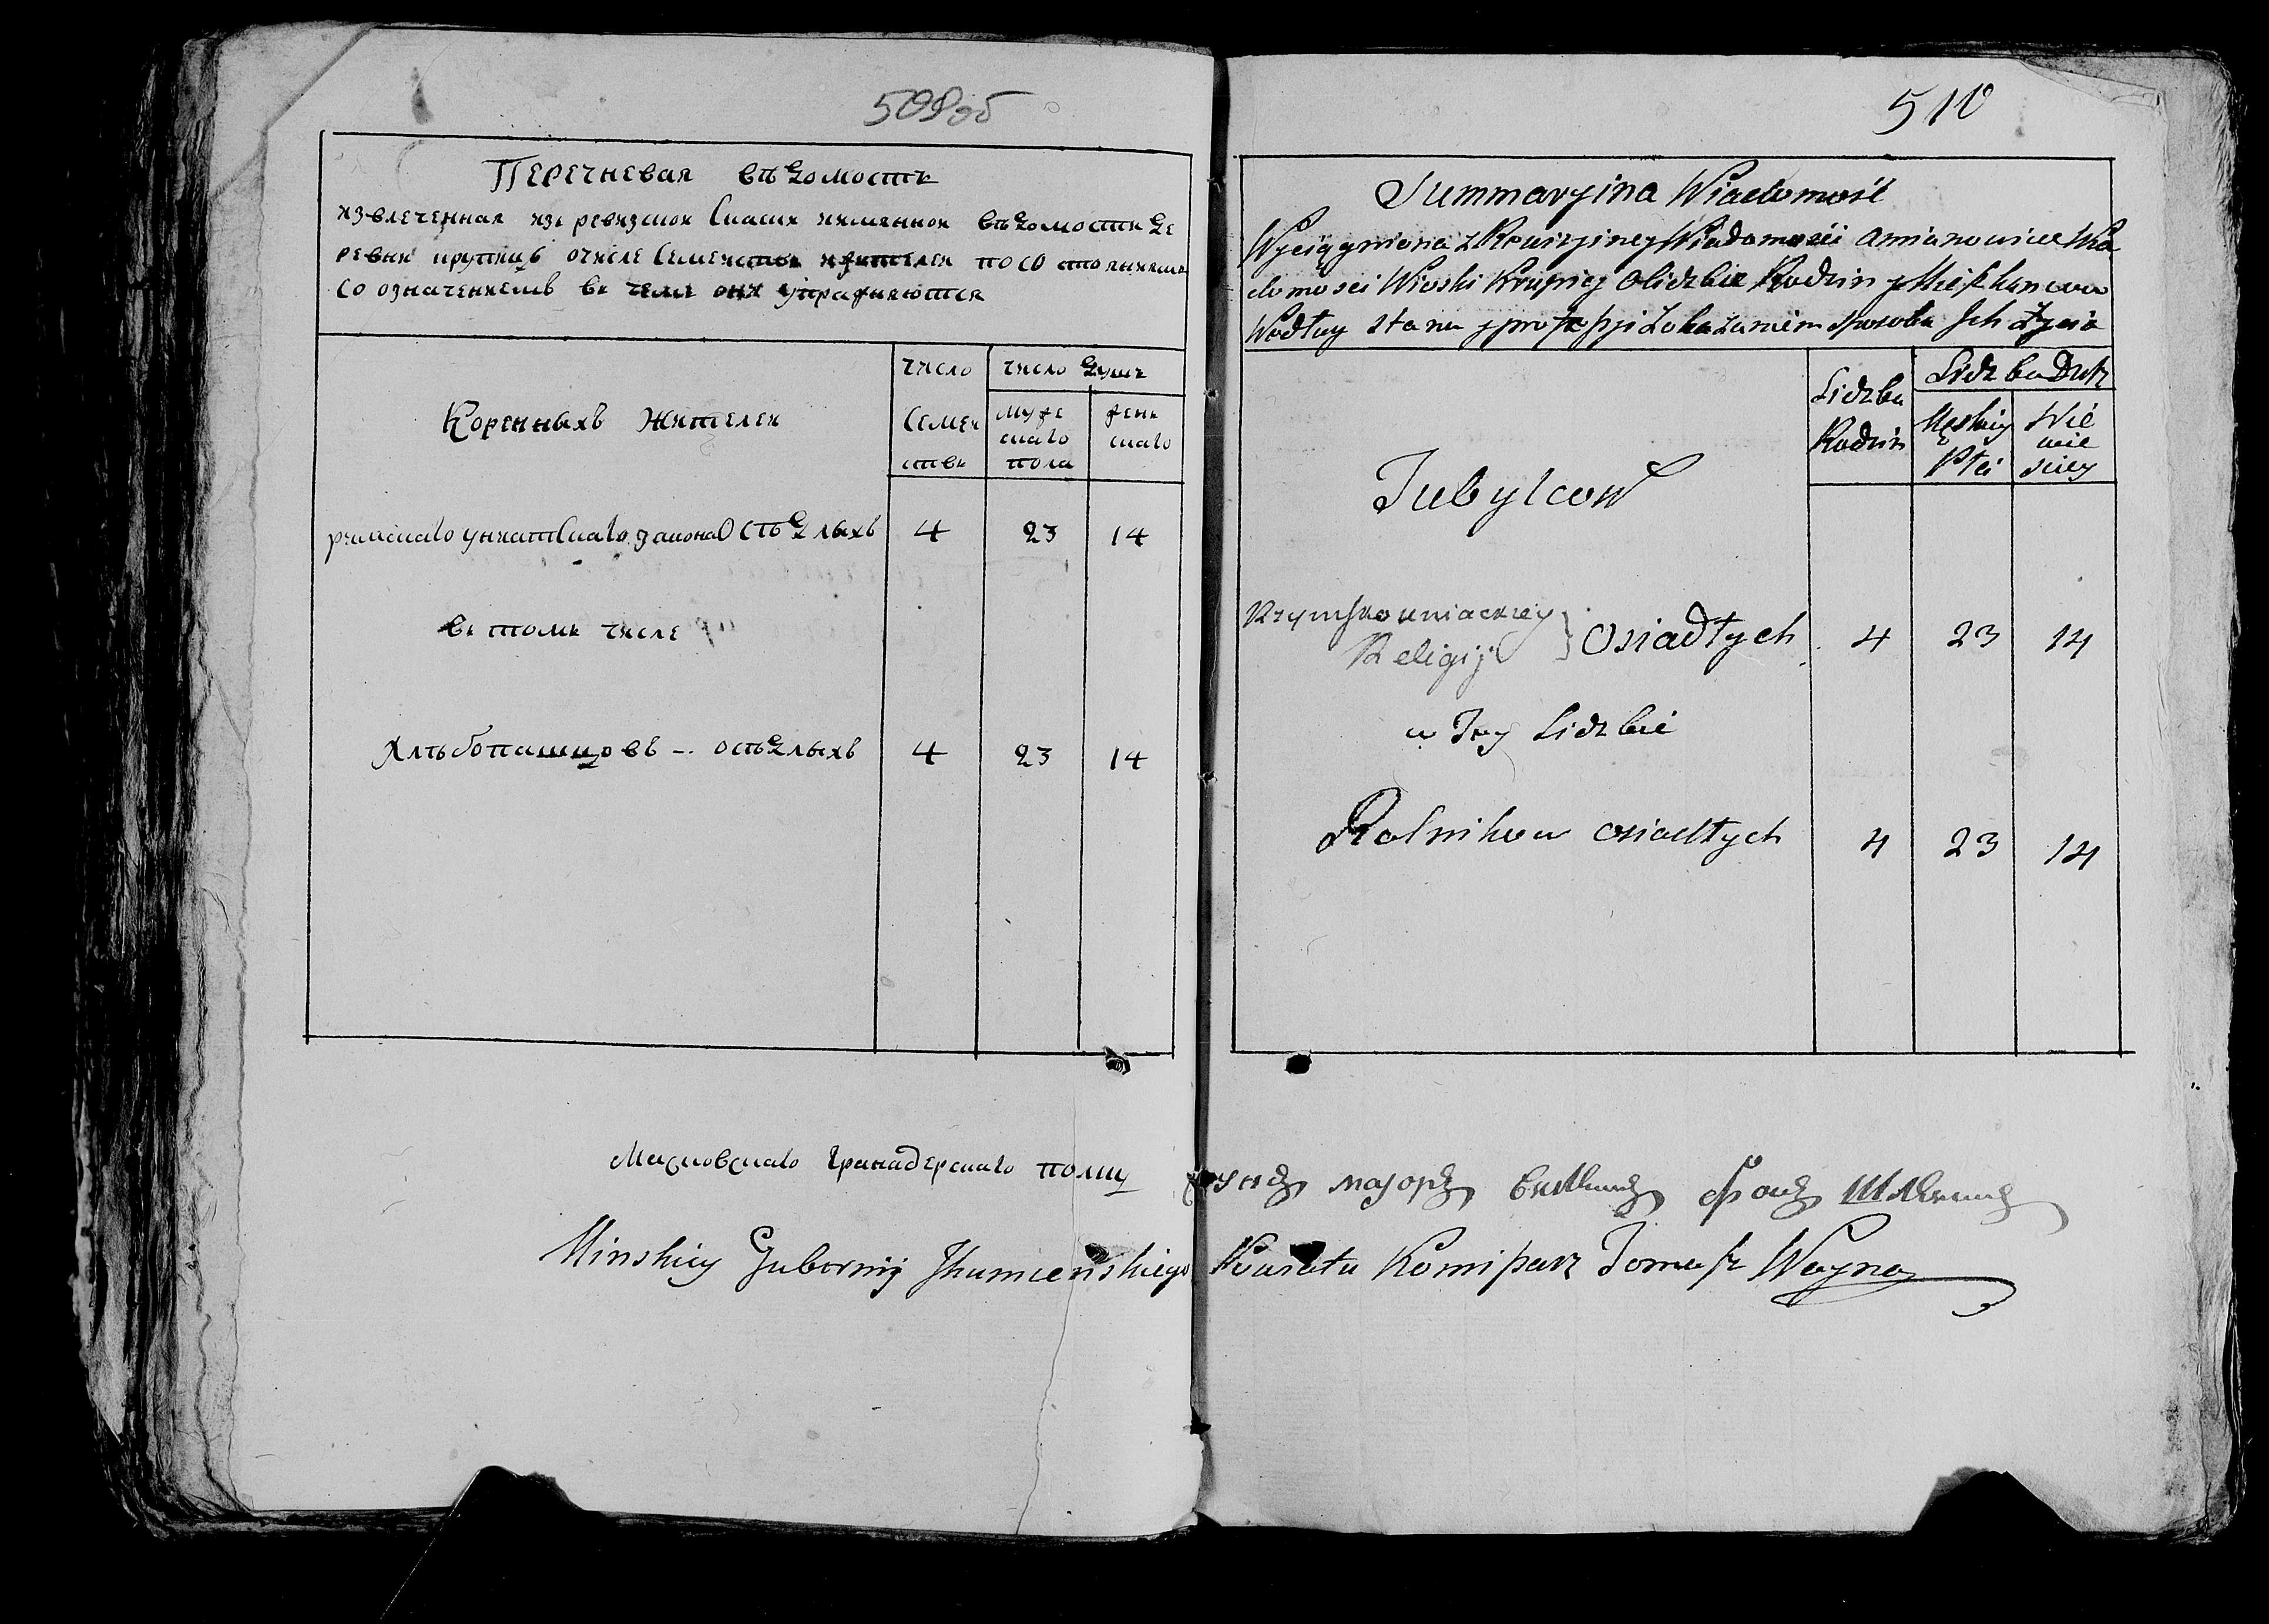 509об
Перечневая вѣдомость
извлеченная изъ ревизской Сказки имянной вѣдомости де
ревни крупицъ очисле Семействъ жителей по со стояниямъ
Со означениемъ въ чемъ они упражняются
Коренныхъ Жителей
Число
Семей
ствъ
число душъ
муже
скаго
пола
жен
скаго
римскаго униатскаго закона Осѣдлыхъ 4 23 14
въ томъ числе
Хлѣбопашцовъ -- осѣдлыхъ 4 23 14
510
Summaryina Wiadomość
Wyciągniona z Rewizyiney Wiadomosci Amianowicie Wia
domosci Wioski Krupicy O lidzbie Rodzin y Mieszkancow
Wedłuy stanu y professji Zokazaniem sposobu Jch Życia
Tubylcow
Lidzba
Rodzin
Lidzba Dusz
Męskiey
Płci
Nie
wie
sciey
Rzymsko uniackiey
Religij } Osiadłych 4 23 14
w Tey Lidzbie
Rolnikow osiadłych 4 23 14
Московскаго гранадерскаго полку секундъ маиоръ
Minskiey Gubernij Jhumienskiego Powiatu Komissarz Tomasz Wayna